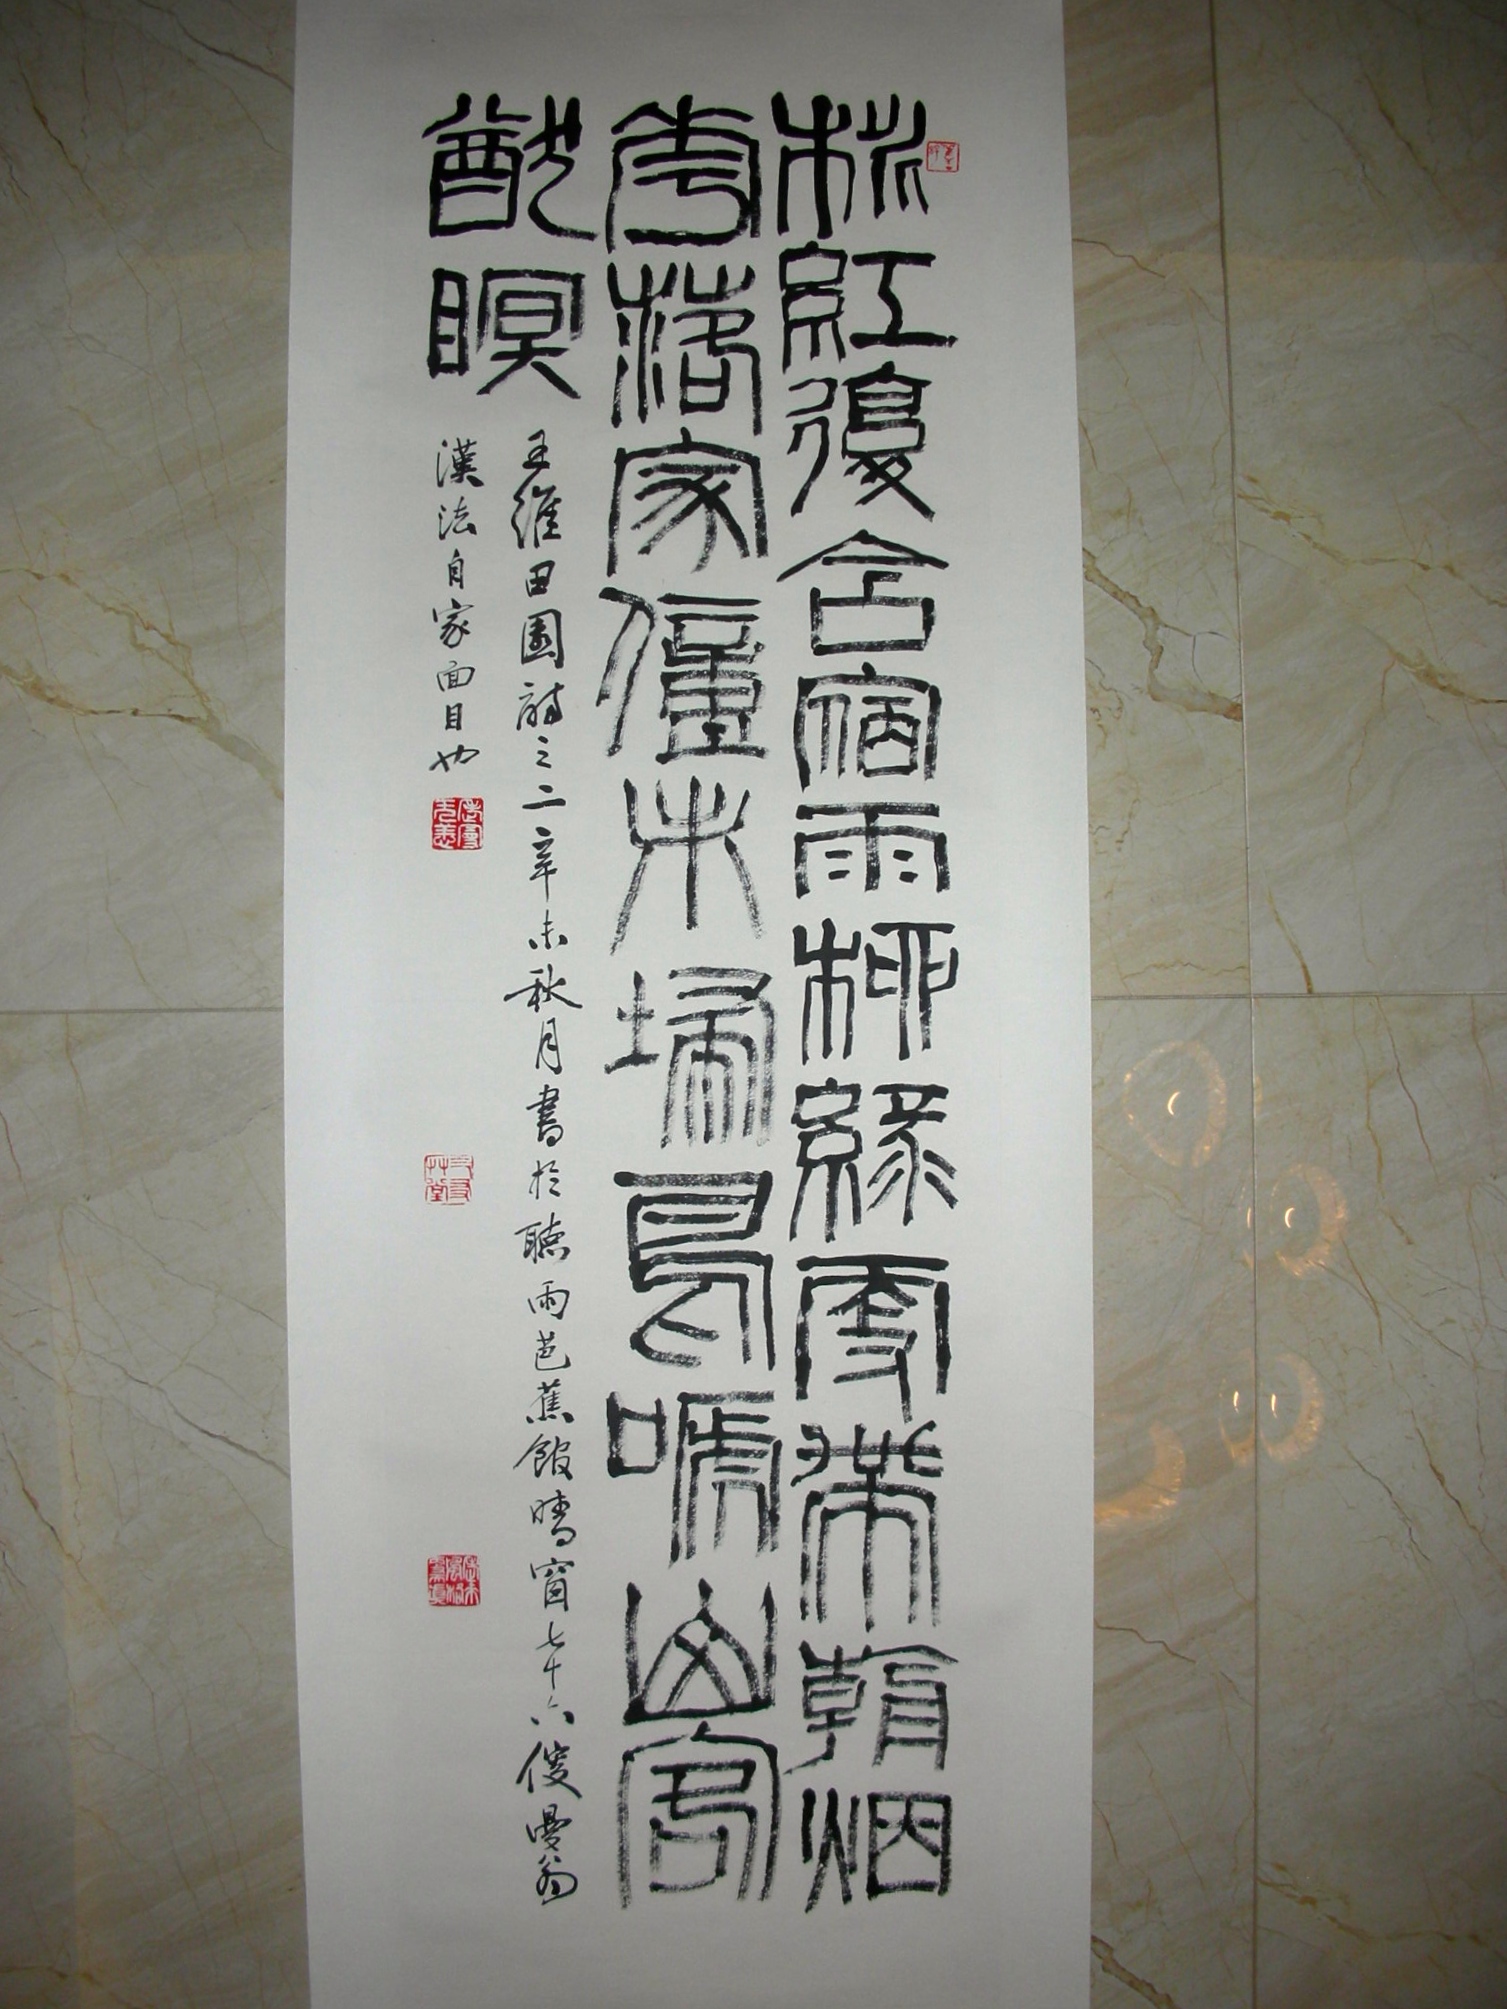 桃紅復含宿雨柳綠更帶朝烟
花落家僮未埽鳥嗁山客
猶瞑
王維田園詩之二辛未秋月書於聽雨芭蕉館晴窗七十六傁曼翁
漢法自家面目也